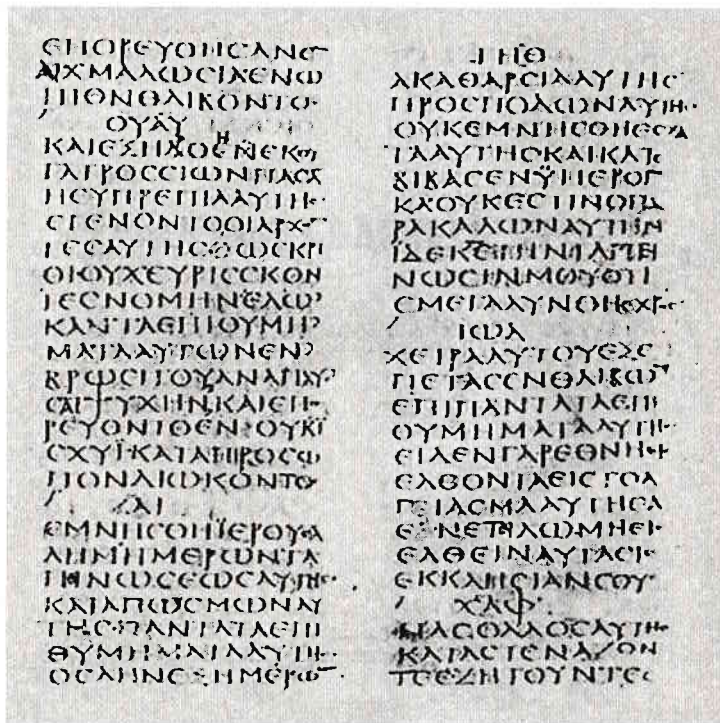 ΕΠΟΡΕΥΘΗСΑΝΕ
ΑΙΧΜΑΛΩСΙΑΕΝΩ
ΠΙΟΝΘΛΙΒΟΝΤΟС
ΟΥΑΥ
ΚΑΙΕΞΗΛΘΕΝΕΚΘΥ
ΓΑΤΡΟССΙΩΝΠΑСΑ
ΗΕΥΠΡΕΠΙΑΑΥΤΗС
ΕΓΕΝΟΝΤΟΟΙΑΡΧΟ
ΤΕСΑΥΤΗСΩСΚΡΙ
ΟΙΟΥΧΕΥΡΙСΚΟΝ
ΤΕСΝΟΜΗΝ
ΠΑΝΤΑΕΠΙΘΥΜΗ
ΜΑΤΑΑΥΤΩΝΕΝ
ΒΡΩСΙΤΟΥΑΝΑΨΥ
ΞΑΙΨΥΧΗΝΚΑΙΕΠΟ
ΡΕΥΟΝΤΟΕΝΟΥΚΙ
СΧΥΪΚΑΤΑΠΡΟСΩ
ΠΟΝΔΙΩΚΟΝΤΟС
ΖΑΙ
ΕΜΝΗСΘΗΪΕΡΟΥСΑ
ΛΗΜΗΜΕΡΩΝΤΑ
ΠΙΝΩСΕΩСΑΥΤΗС
ΚΑΙΑΠΩСΜΩΝΑΥ
ΤΗСΠΑΝΤΑΤΑΕΠΙ
ΘΥΜΗΜΑΤΑΑΥΤΗС
ΟСΑΗΝΕΞΗΜΕΡΩ
ΤΗΘ
ΑΚΑΘΑΡСΙΑΑΥΤΗС
ΠΡΟСΠΟΔΩΝΑΥΤΗС
ΟΥΚΕΜΝΗСΘΗΕСΧΑ
ΤΑΑΥΤΗСΚΑΙΚΑΤΕ
ΒΙΒΑСΕΝΫΠΕΡΟΓ
ΚΑΟΥΚΕСΤΙΝΟΠΑ
ΡΑΚΑΛΩΝΑΥΤΗΝ
ΪΔΕΚΕΤΗΝΤΑΠΕΙ
ΝΩСΙΝΜΟΥΟΤΙ
ΕΜΕΓΑΛΥΝΘΗΕΧΘΡΟС
ΙΩΔ
ΧΕΙΡΑΑΥΤΟΥΕΞΕ
ΠΕΤΑСΕΝΘΛΙΒΩ
ΕΠΙΠΑΝΤΑΤΑΕΠΙ
ΘΥΜΗΜΑΤΑΑΥΤΗС
ΕΙΔΕΝΓΑΡΕΘΝΗ
ΕΛΘΟΝΤΑΕΙСΤΟΑ
ΓΙΑСΜΑΑΥΤΗСΑ
ΕΝΕΤΙΛΩΜΗΕΙС
ΕΛΘΕΙΝΑΥΤΑΕΙС
ΕΚΚΛΗСΙΑΝСΟΥ
ΧΑΦ
ΠΑСΟΛΑΟСΑΥΤΗС
ΚΑΤΑСΤΕΝΑΖΟΝ
ΤΕСΖΗΤΟΥΝΤΕС